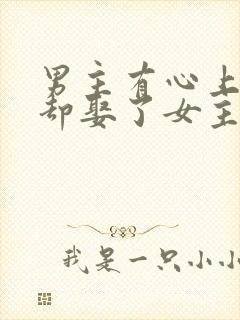 男主有心上
却娶了女主
我是一只小小